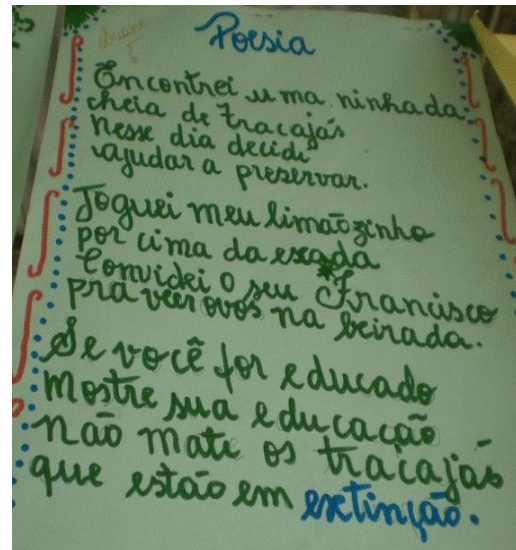 Poesia
Encontrei uma ninhada
cheia de tracajás
nesse dia decidi
ajudar a preservar.
Joguei meu limãozinho
por cima da exada
Convidei o seu Francisco
pra veer ovos na beirada.
Se você for educado
Mostre sua educação
não mate os tracajás
que estão em extinção.